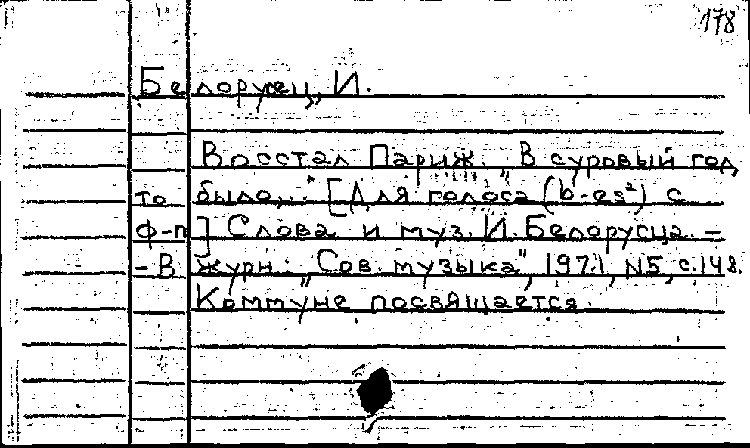 178
Белорусец, И.
Восстал Париж. "В суровый год
то было,.." [Для голоса (b-es²) с
ф-п] Слова и муз. И. Белорусца. –
– В журн.: "Сов. музыка", 1971, N5, с.148.
Коммуне посвящается.